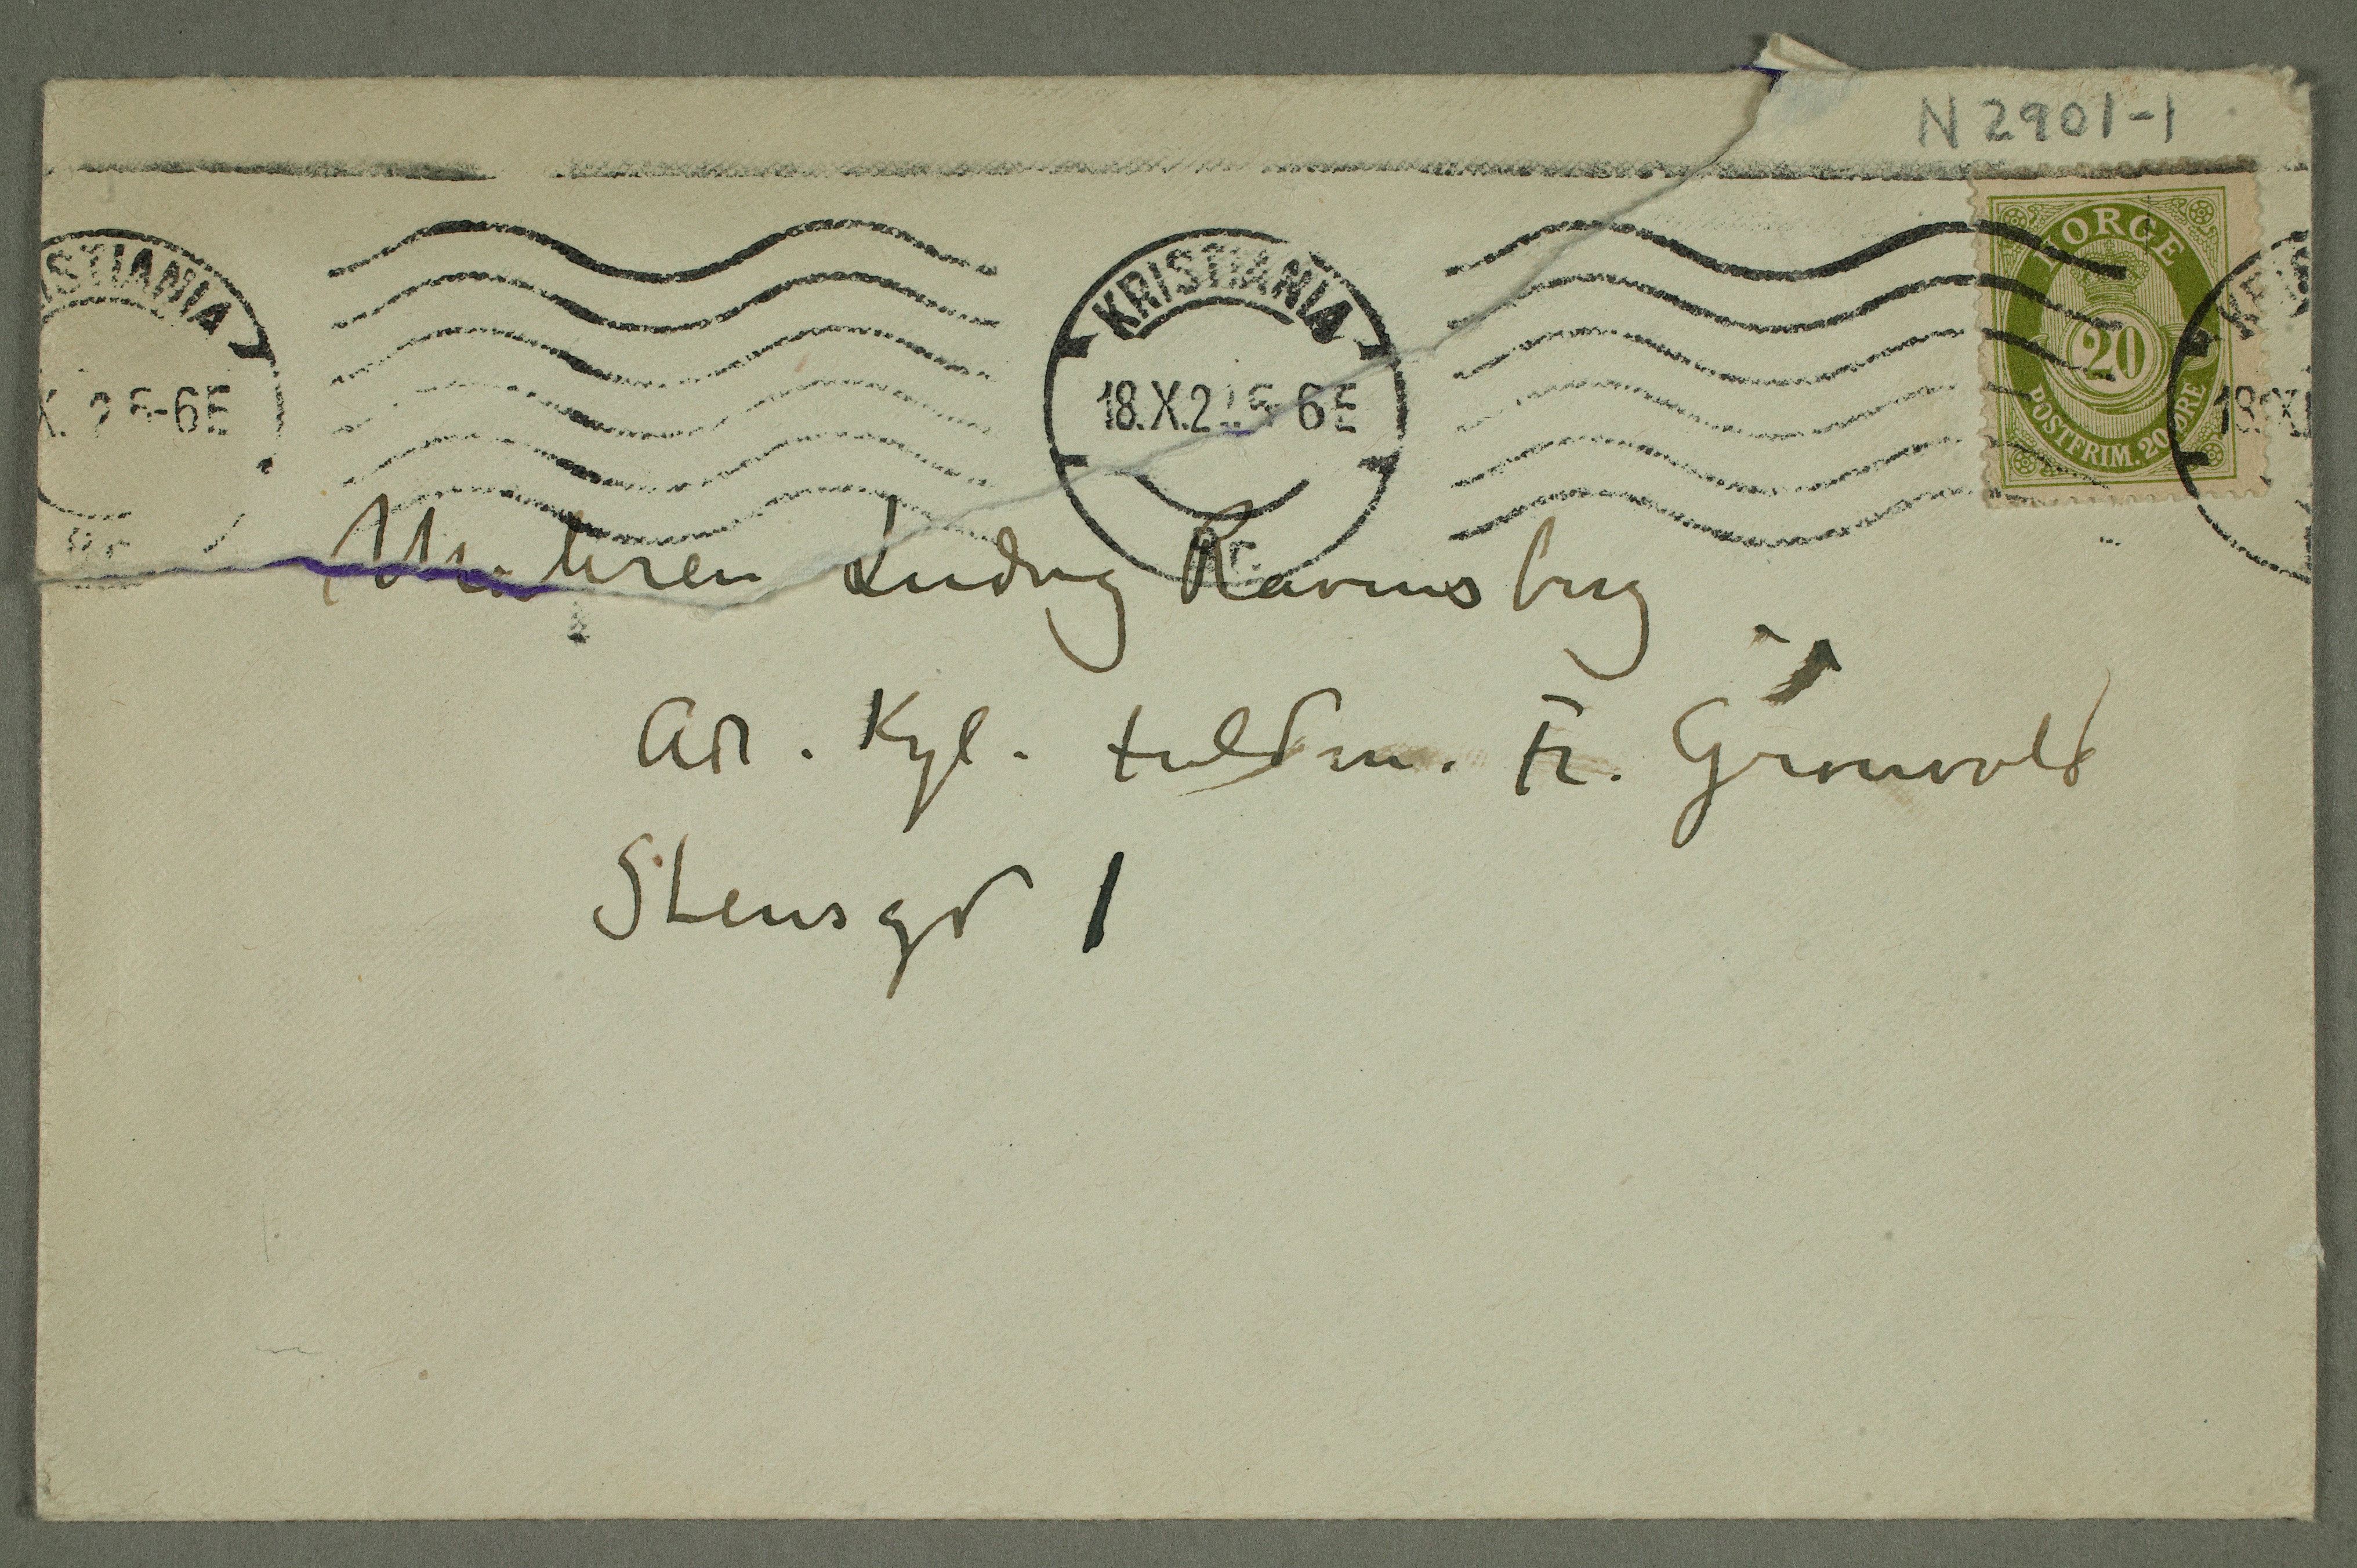 N 2901-1
STIANIA
KRISTIANIA
NORGE
20
POSTFRIM. 20 ØRE
X. 2 5-6E
18.X.2 5 6E
18.X
Br.
Maleren Ludvig Ravensberg
Adr. Kgl. fuldm. Fr. Grønvold
Stensgd 1